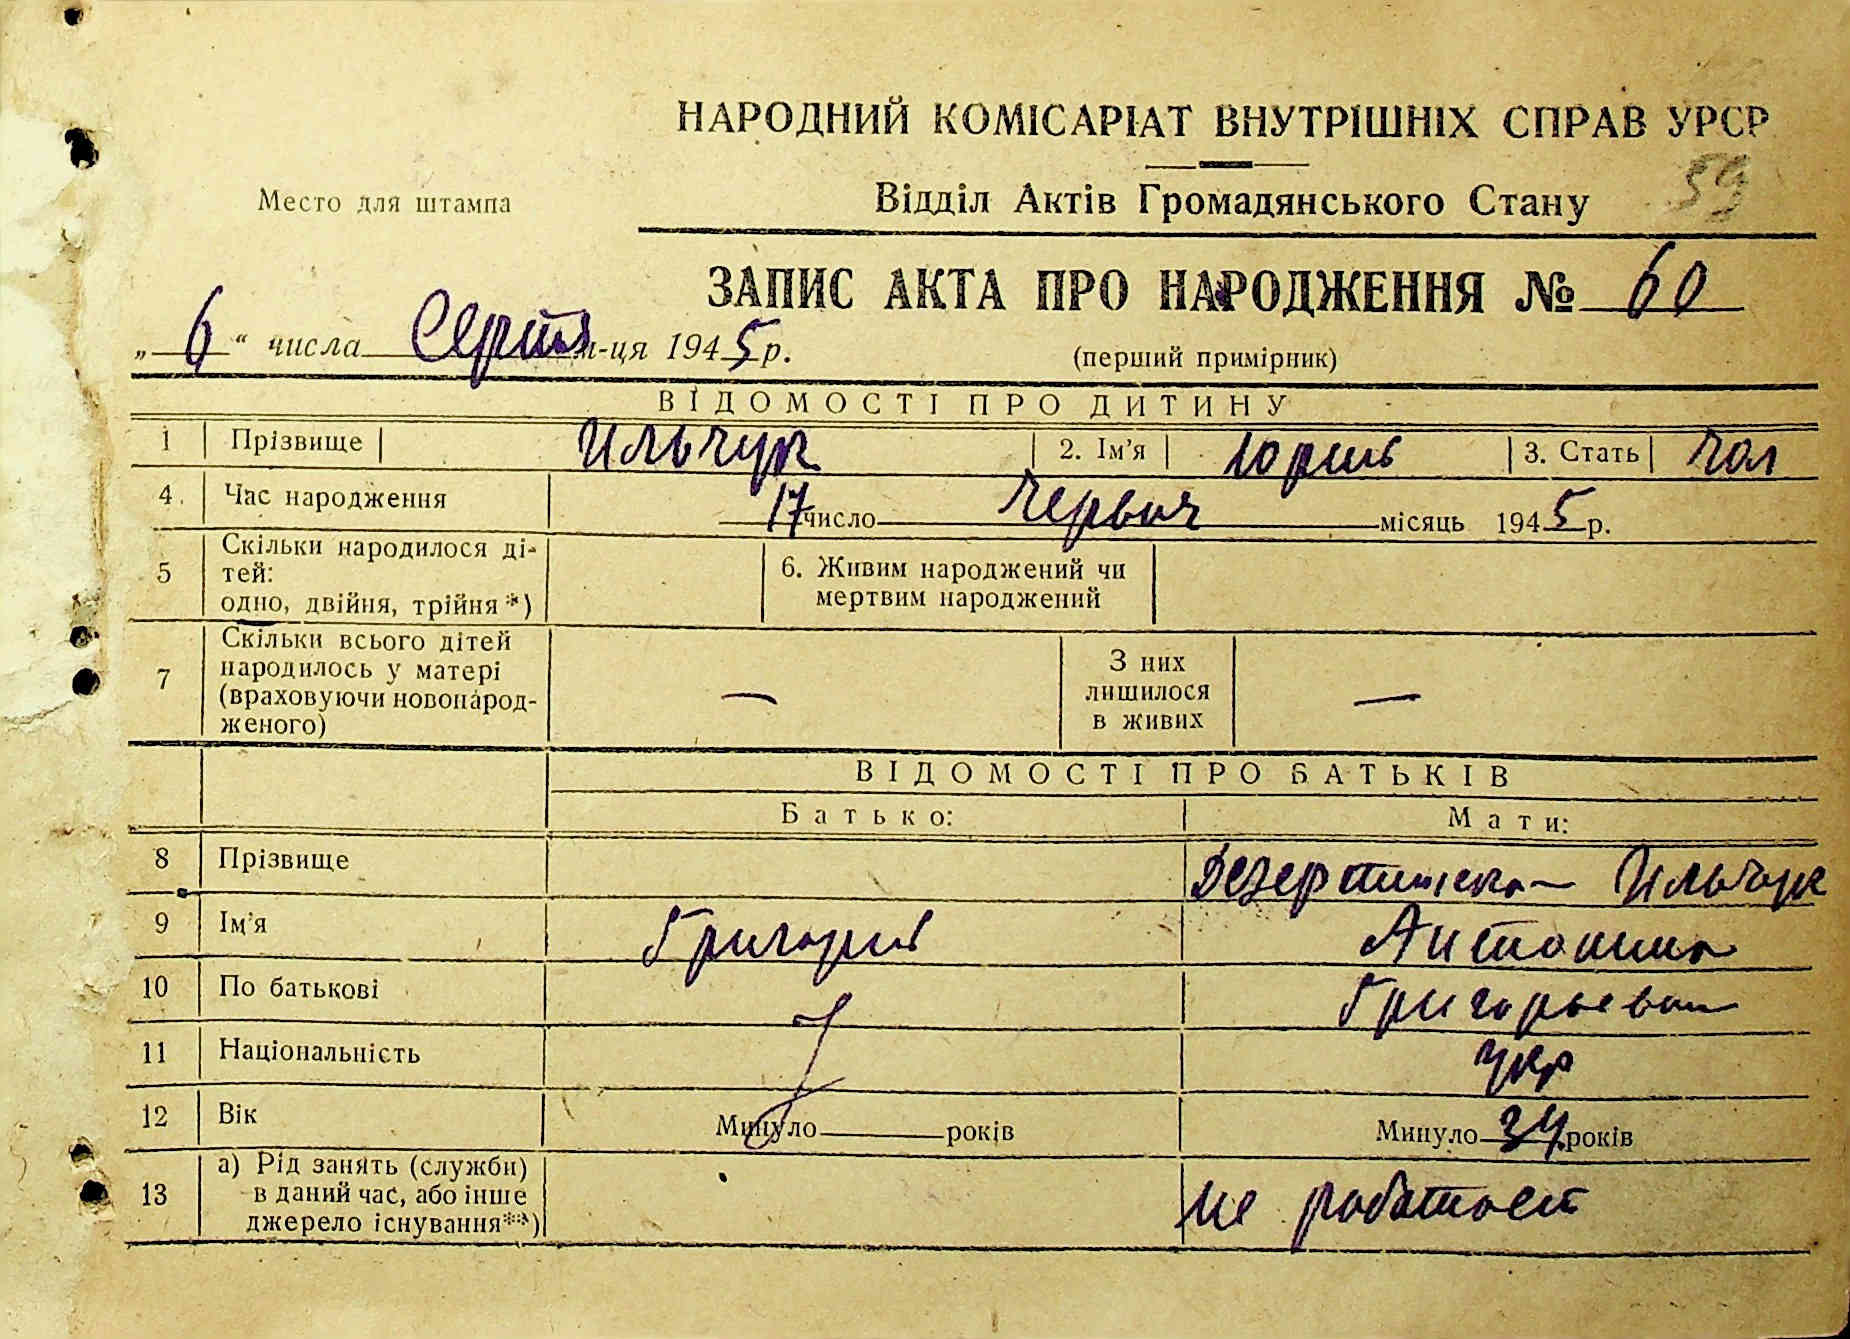 НАРОДНИЙ КОМІСАРІАТ ВНУТРІШНІХ СПРАВ УРСР
Место для штампа
Відділ Актів Громадянського Стану
59
ЗАПИС АКТА ПРО НАРОДЖЕННЯ № 60
„ 6 “ числа Серпня м-ця 1945 р.
(перший примірник)
ВІДОМОСТІ ПРО ДИТИНУ
1 Прізвище Ильчук 2. Ім'я Юрий 3. Стать чол
4. Час народження 17 число Червня місяць 1945 р.
5 Скільки народилося ді-
тей:
одно, двійня, трійня*)
6. Живим народжений чи
мертвим народжений
7 Скільки всього дітей
народилось у матері
(враховуючи новонарод-
женого)
—
З них
лишилося
в живих
—
ВІДОМОСТІ ПРО БАТЬКІВ
Батько: Мати:
8 Прізвище Ильчук
9 Ім'я Григорий Антонина
10 По батькові Григорьевна
11 Національність укр
12 Вік Минуло років Минуло 34 років
13 а) Рід занять (служби)
в даний час, або інше
джерело існування**)
не работает